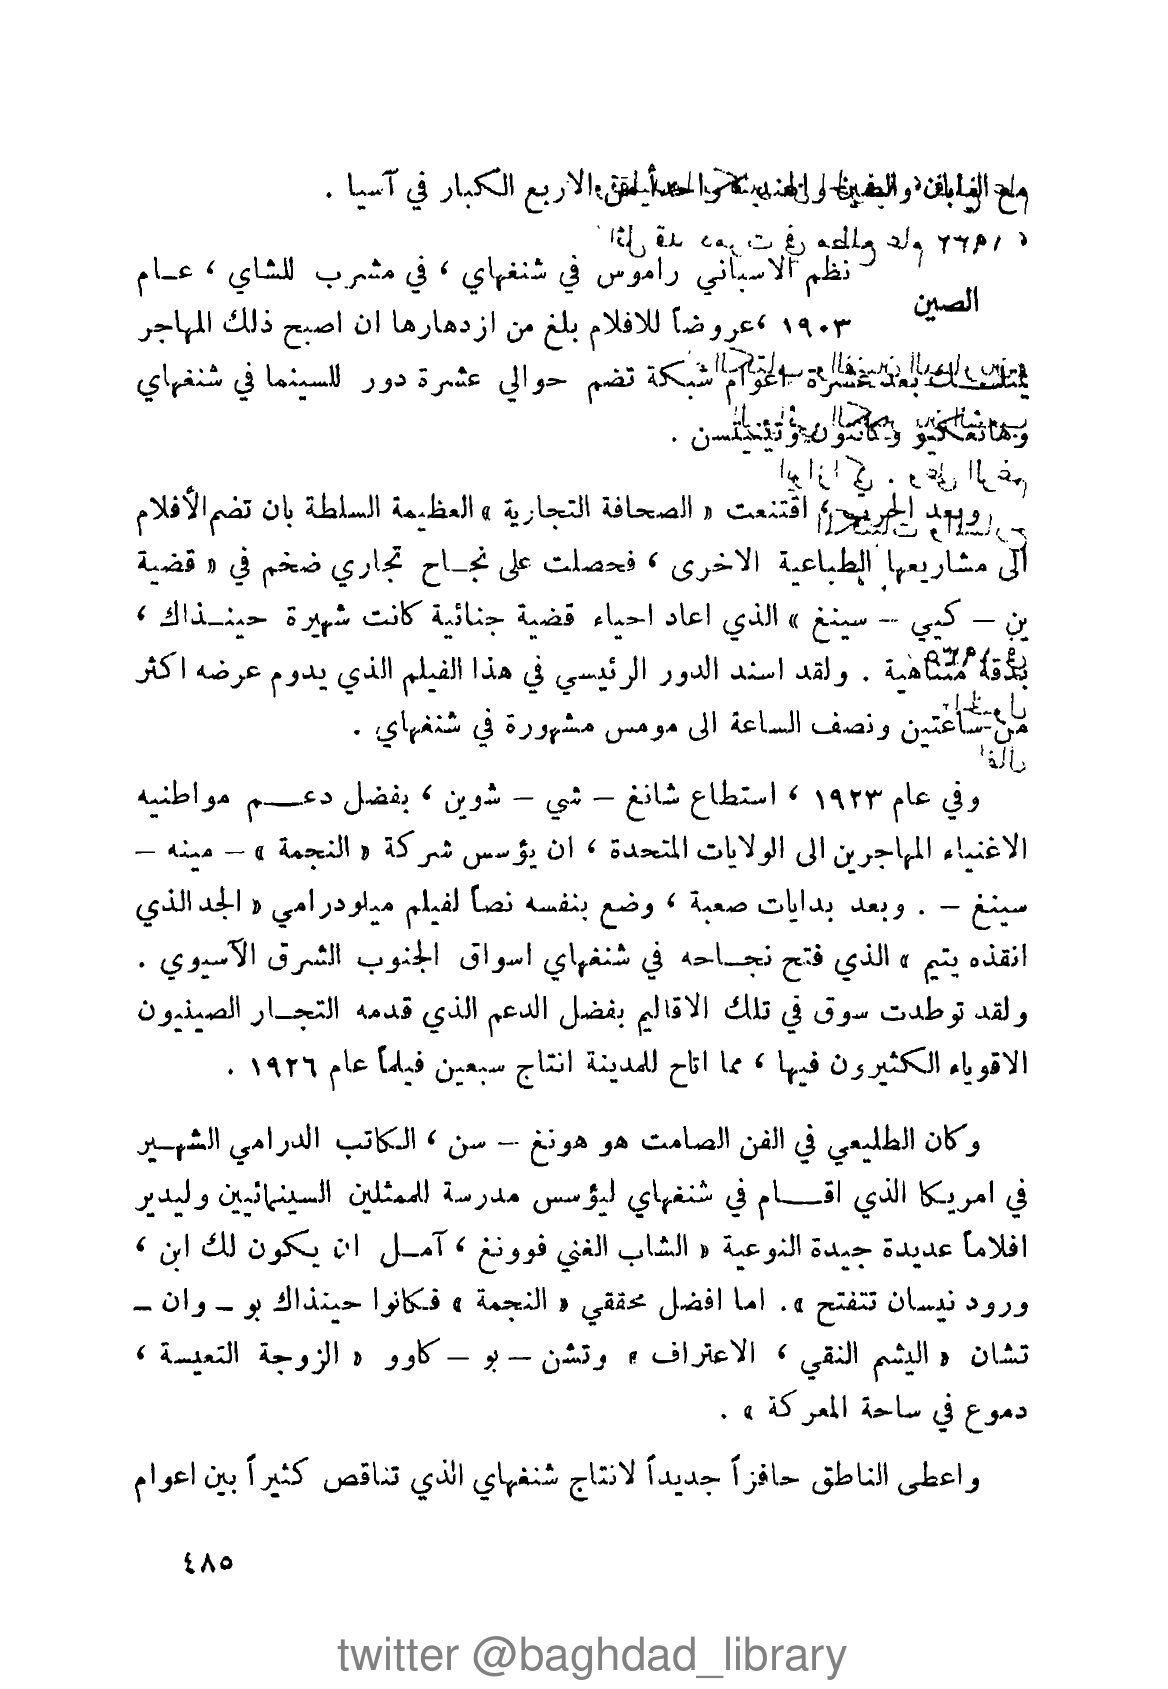 مع اليابان والصين والهند واحداً من الاربع الكبار في آسيا .
الصين
نظم الاسباني راموس في شنغهاي ، في مشرب للشاي ، عـام
١٩٠٣ ،عروضاً للافلام بلغ من ازدهارها ان اصبح ذلك المهاجر
بعد عشرة اعوام شبكة تضم حوالي عشرة دور للسينما في شنغهاي
وهانكيو وكانتون
وبعد الحرب ، اقتنعت « الصحافة التجارية » العظيمة السلطة بان تضم الأفلام
الى مشاريعها الطباعية الاخرى ، فحصلت على نجـاح تجاري ضخم في « قضية
ين – كيي – سينغ » الذي اعاد احياء قضية جنائية كانت شهيرة حينـذاك ،
بدقة متناهية . ولقد اسند الدور الرئيسي في هذا الفيلم الذي يدوم عرضه اكثر
من ساعتين ونصف الساعة الى مومس مشهورة في شنغهاي .
وفي عام ١٩٢٣ ، استطاع شانغ – شي – شوين ، بفضل دعـم مواطنيه
الاغنياء المهاجرين الى الولايات المتحدة ، ان يؤسس شركة « النجمة » – مينه –
سينغ – . وبعد بدايات صعبة ، وضع بنفسه نصاً لفيلم ميلودرامي « الجد الذي
انقذه يتيم » الذي فتح نجـاحه في شنغهاي اسواق الجنوب الشرق الآسيوي .
ولقد توطدت سوق في تلك الاقاليم بفضل الدعم الذي قدمه التجـار الصينيون
الاقوياء الكثيرون فيها ، مما اتاح للمدينة انتاج سبعين فيلماً عام ١٩٢٦ .
وكان الطليعي في الفن الصامت هو هونغ – سن ، الكاتب الدرامي الشهـير
في امريكا الذي اقـام في شنغهاي ليؤسس مدرسة للممثلين السينمائيين وليدير
افلاماً عديدة جيدة النوعية « الشاب الغني فوونغ ، آمـل ان يكون لك ابن ،
ورود نيسان تتفتح ». اما افضل محققي « النجمة » فكانوا حينذاك بو – وان –
تشان « اليشم النقي ، الاعتراف » وتشن – بو – كاوو « الزوجة التعيسة ،
دموع في ساحة المعركة » .
واعطى الناطق حافزاً جديداً لانتاج شنغهاي الذي تناقص كثيراً بين اعوام
٤٨٥
twitter @baghdad_library